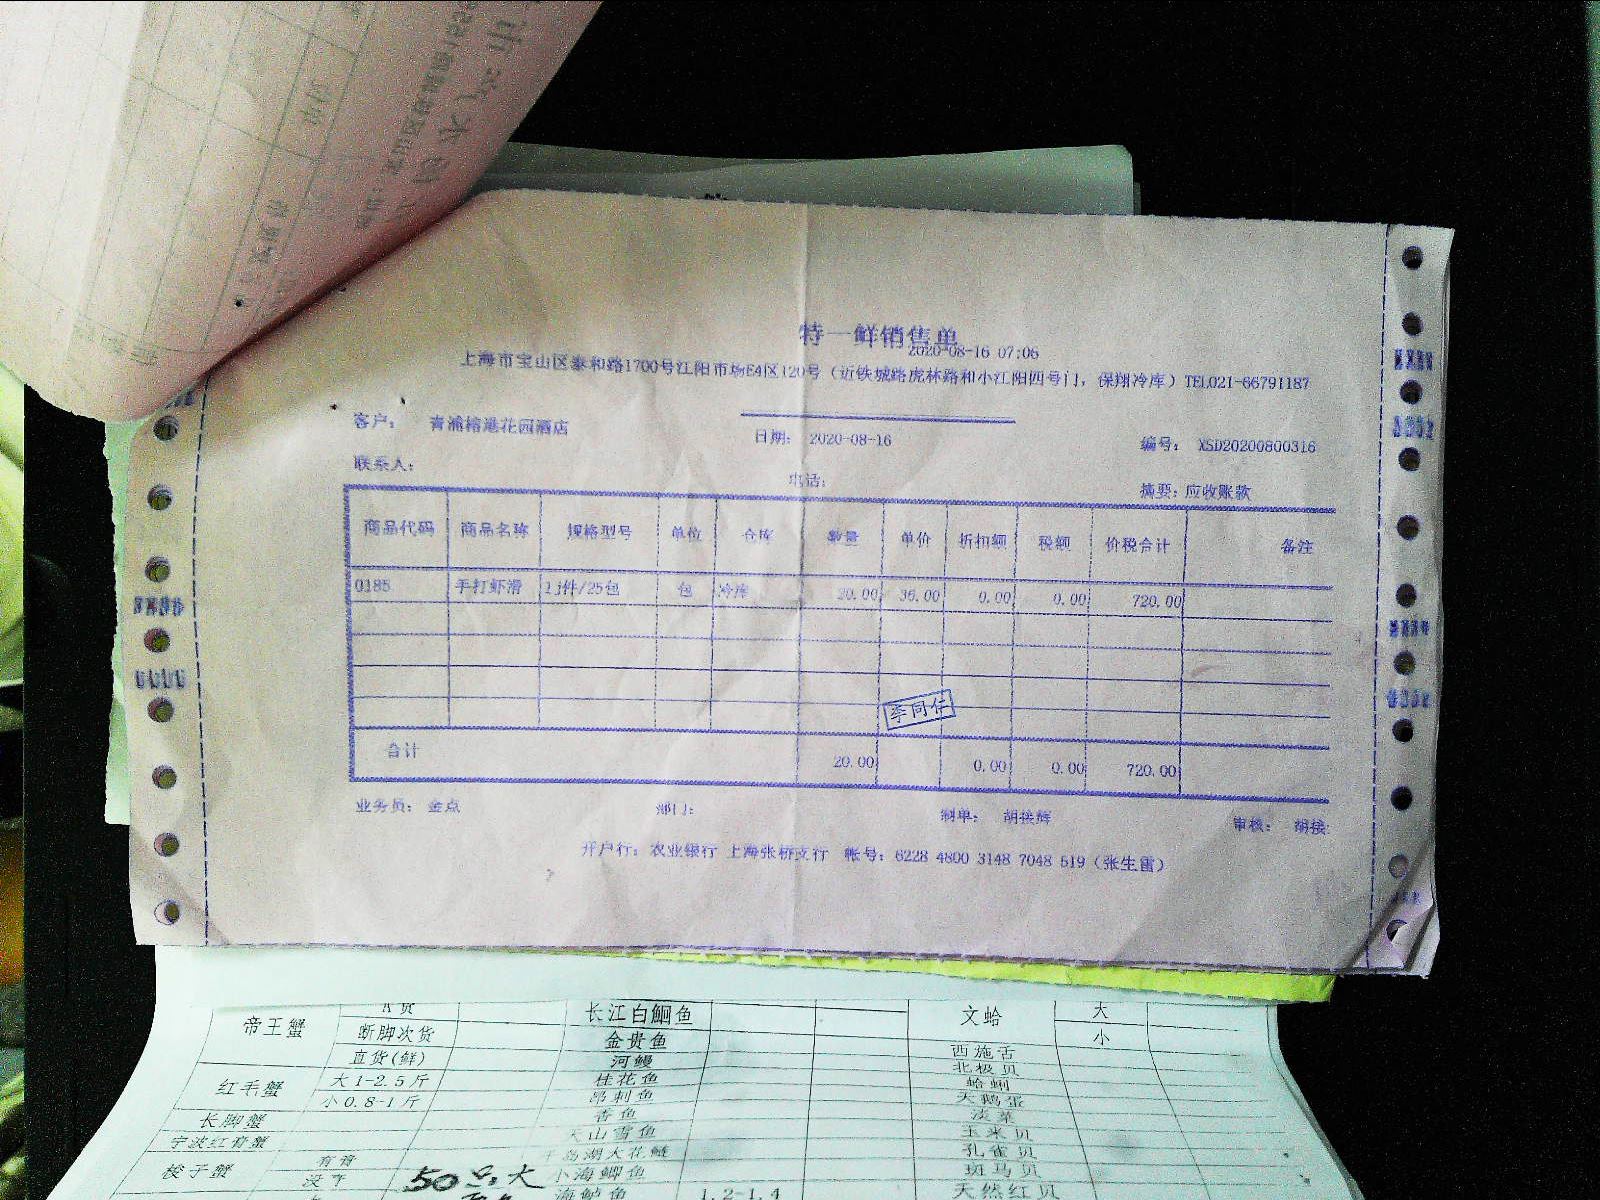 特一鲜销售单
2020-08-16 07:06
上海市宝山区泰和路1700号江阳市场E4区120号（近铁城路虎林路和小江阳四号门，保翔冷库）TEL021-66791187
客户： 青浦 花园酒店 日期： 2020-08-16 编号： XSD20200800316
联系人： 电话： 摘要：应收账款
商品代码 商品名称 规格型号 单位 仓库 数量 单价 折扣额 税额 价税合计 备注
0185 手打虾滑 1J件/25包 包 冷库 20.00 36.00 0.00 0.00 720.00
李同仁
合计 20.00 0.00 0.00 720.00
业务员： 金点 部门： 制单： 胡接辉 审核： 胡接
开户行：农业银行 上海张桥支行 帐号：6228 4800 3148 7048 519（张生雷）
帝王蟹 A货 长江白鮰鱼 文蛤 大
断脚次货 金贵鱼 小
直货(鲜) 河鳗 西施舌
红毛蟹 大1-2.5斤 桂花鱼 北极贝
小0.8-1斤 昂刺鱼 蛤蜊
长脚蟹 香鱼 天鹅蛋
宁波红膏蟹 天山雪鱼 淡菜
梭子蟹 有膏 千岛湖大花鲢 玉米贝
没下 50 大 小海鲫鱼 孔雀贝
海鲈鱼 1.2-1.4 斑马贝
天然红贝